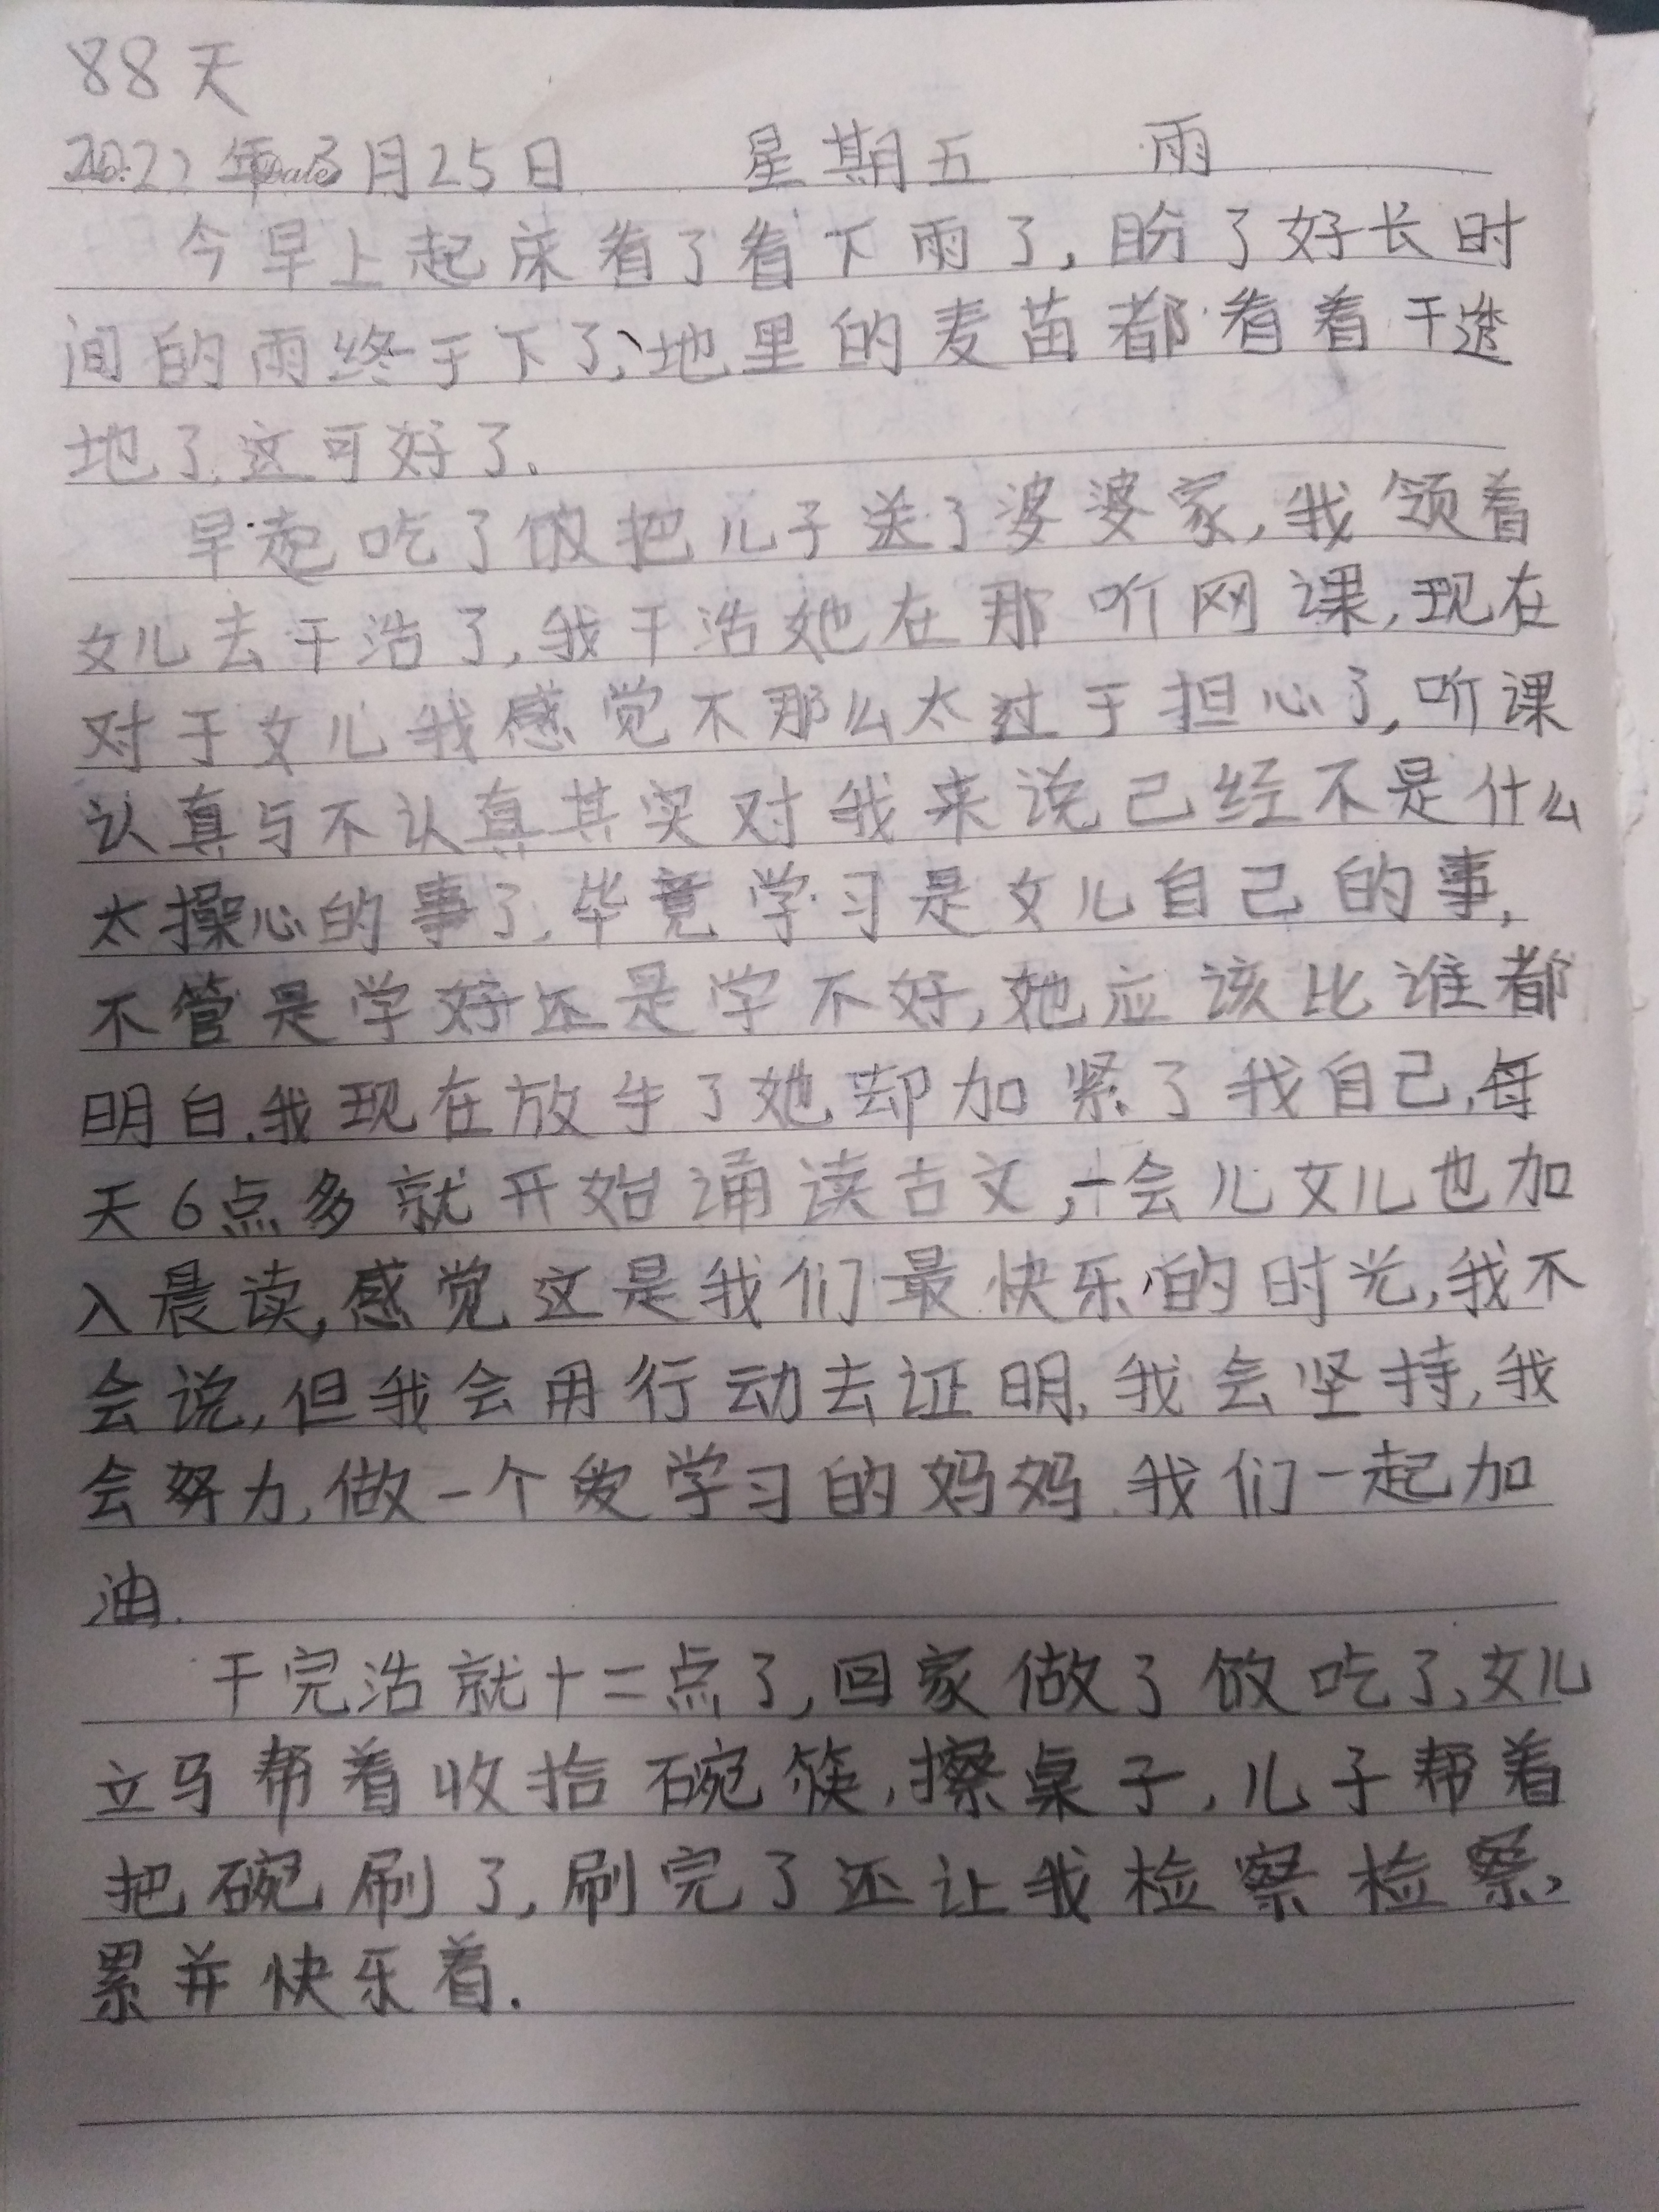 88天
2022年3月25日 星期五 雨
今早上起床看了看下雨了,盼了好长时
间的雨终于下了,地里的麦苗都看着干透
地了.这可好了.
早起吃了饭把儿子送了婆婆家,我领着
女儿去干活了,我干活她在那听网课,现在
对于女儿我感觉不那么太过于担心了,听课
认真与不认真其实对我来说已经不是什么
太操心的事了,毕竟学习是女儿自己的事,
不管是学好还是学不好,她应该比谁都
明白.我现在放手了她却加紧了我自己,每
天6点多就开始诵读古文,一会儿女儿也加
入晨读,感觉这是我们最快乐的时光,我不
会说,但我会用行动去证明,我会坚持,我
会努力,做一个爱学习的妈妈.我们一起加
油.
干完活就十二点了,回家做了饭吃了,女儿
立马帮着收拾碗筷,擦桌子,儿子帮着
把碗刷了,刷完了还让我检察检察,
累并快乐着.